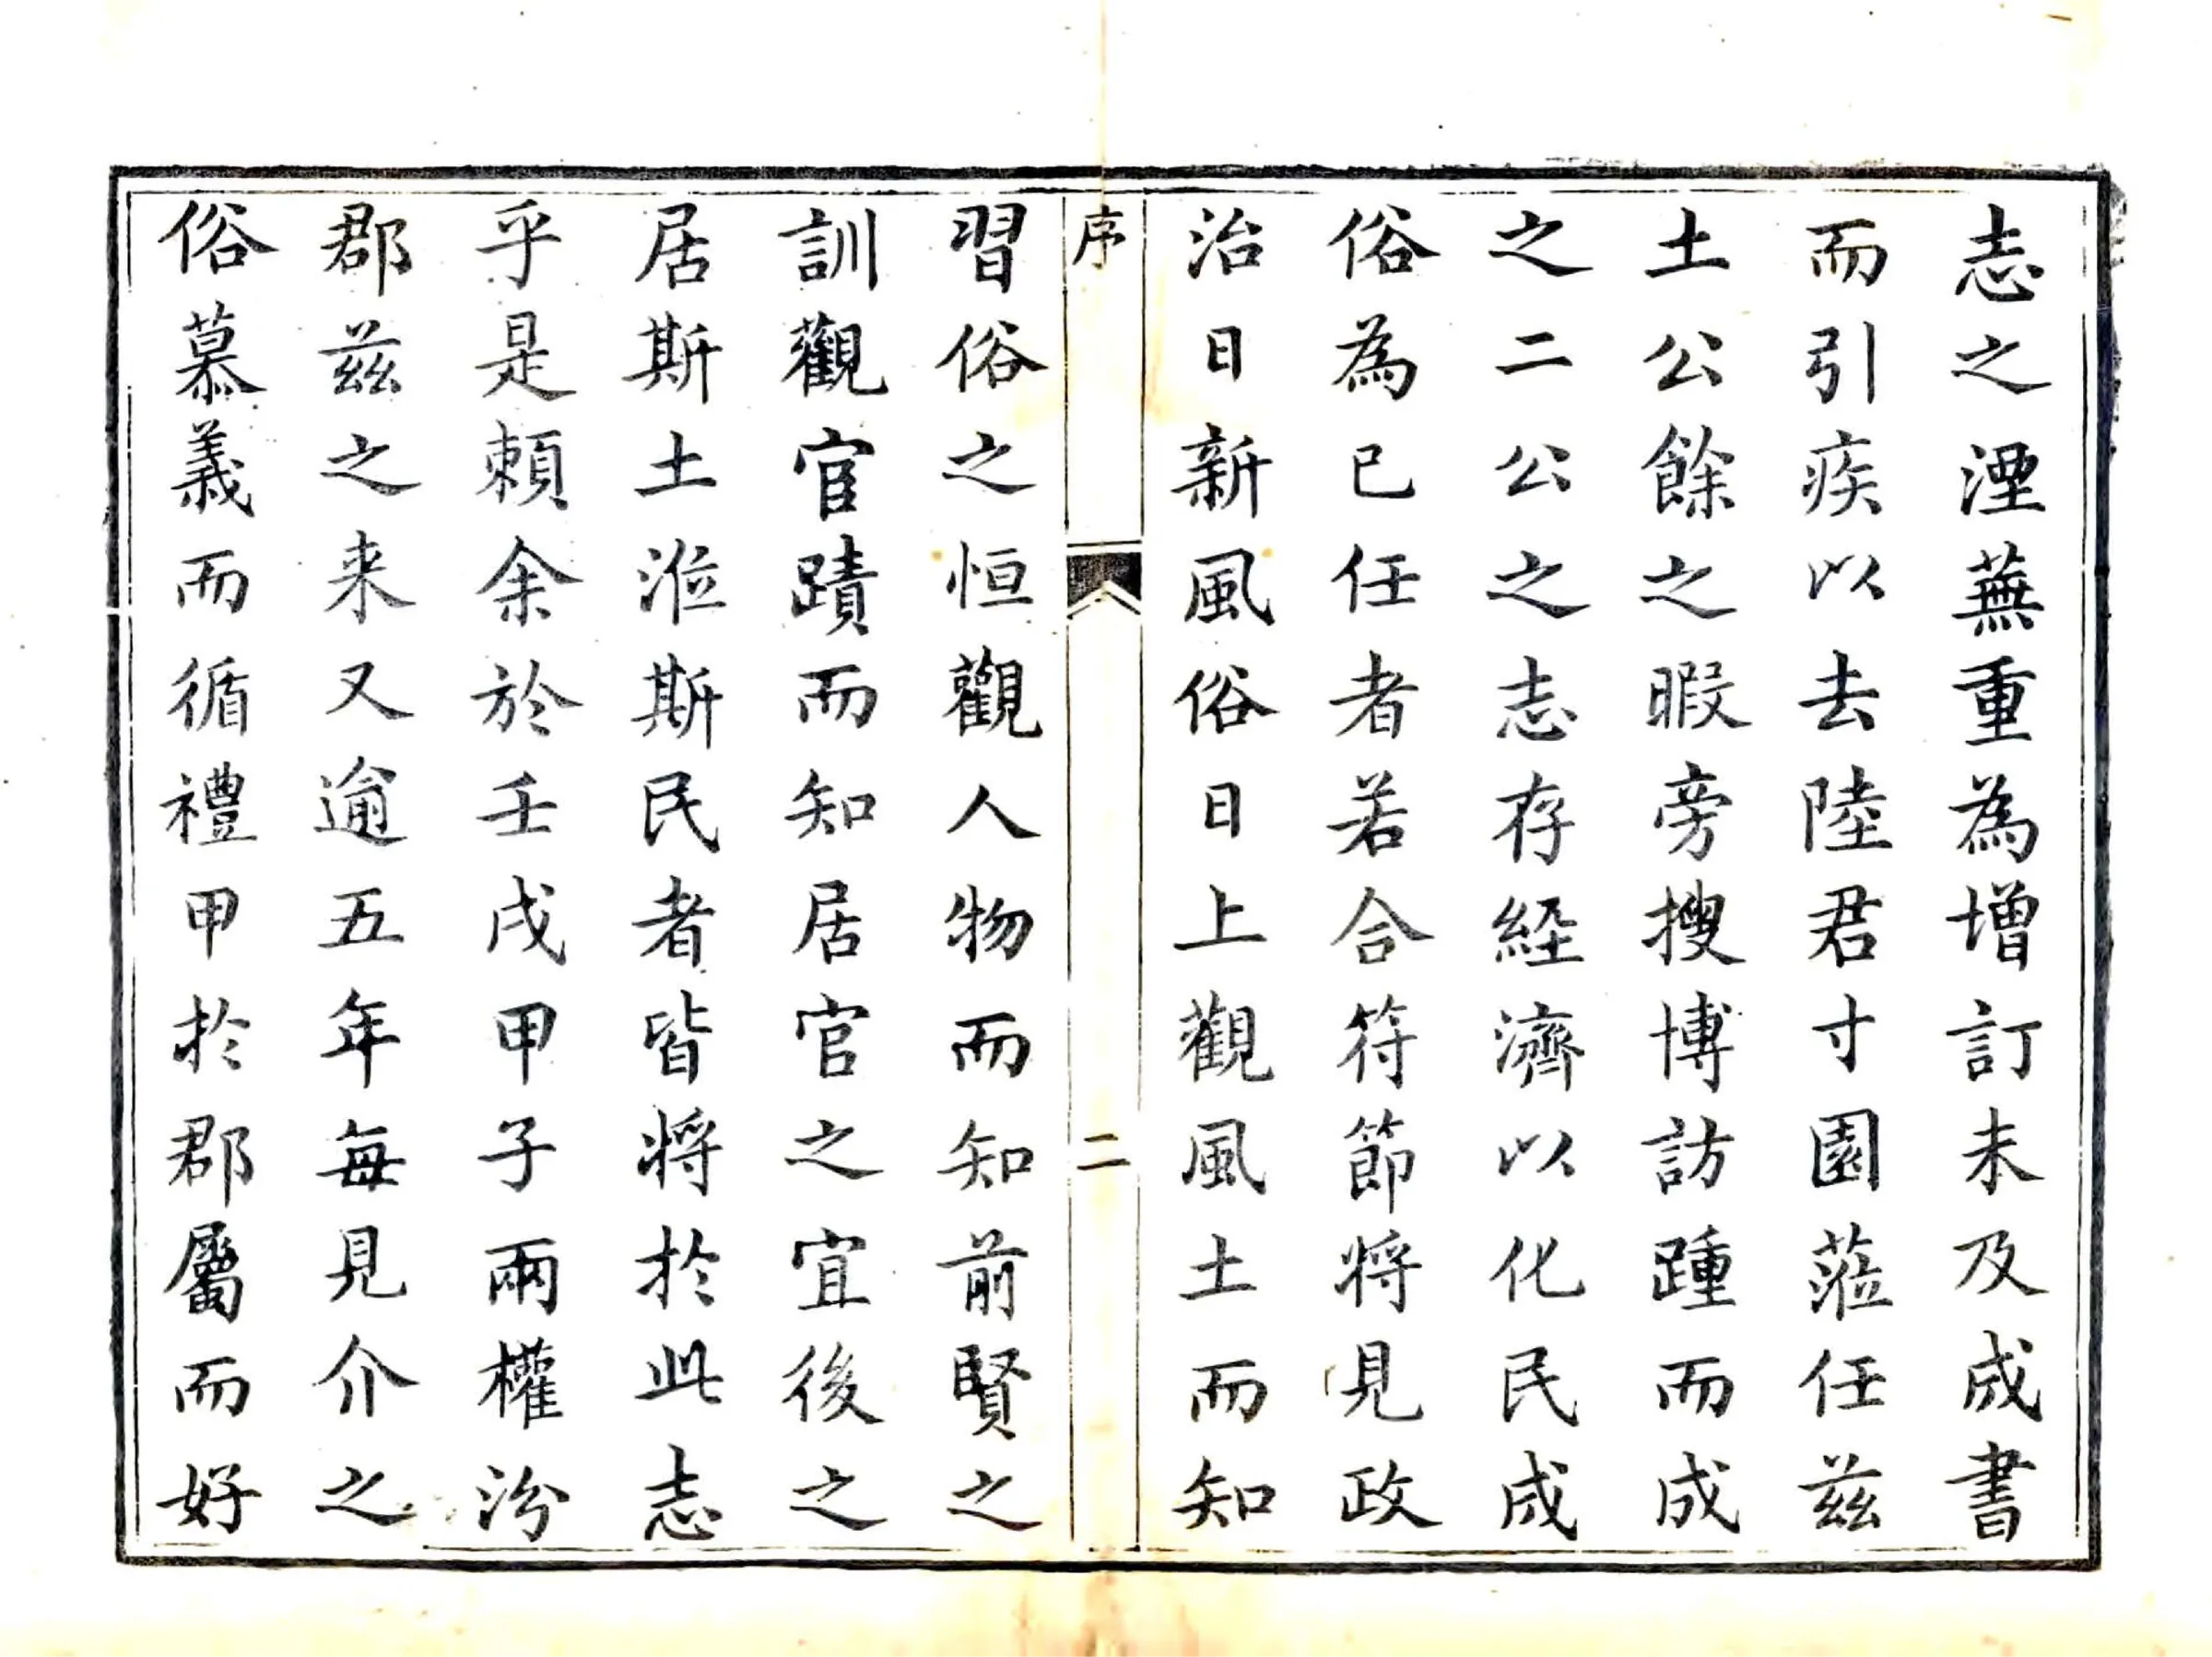 志之湮蕪重為增訂未及成書
而引疾以去陸君寸園蒞任茲
土公餘之暇旁搜博訪踵而成
之二公之志存經濟以化民成
俗為已任者若合符節將見政
治日新風俗日上觀風土而知
序 二
習俗之恒觀人物而知前賢之
訓觀宦蹟而知居官之宜後之
居斯土涖斯民者皆將於此志
乎是賴余於壬戌甲子兩權汾
郡茲之来又逾五年每見介之
俗慕義而循禮甲於郡屬而好